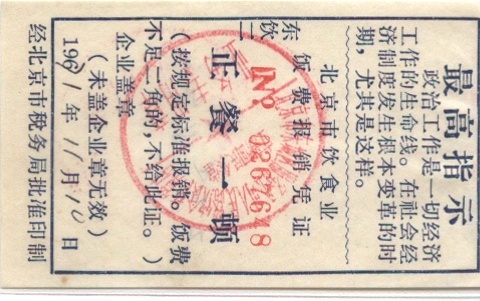 最高指示
政治工作是一切经济
工作的生命线。在社会经
济制度发生根本变革的时
期，尤其是这样。
北京市饮食业
东饮 饭费报销凭证
№ 0267648
正餐一顿
（按规定标准报销。饭费
不足二角的，不给此证。）
企业盖章
（未盖企业章无效）
196 年11月10日
经北京市税务局批准印制